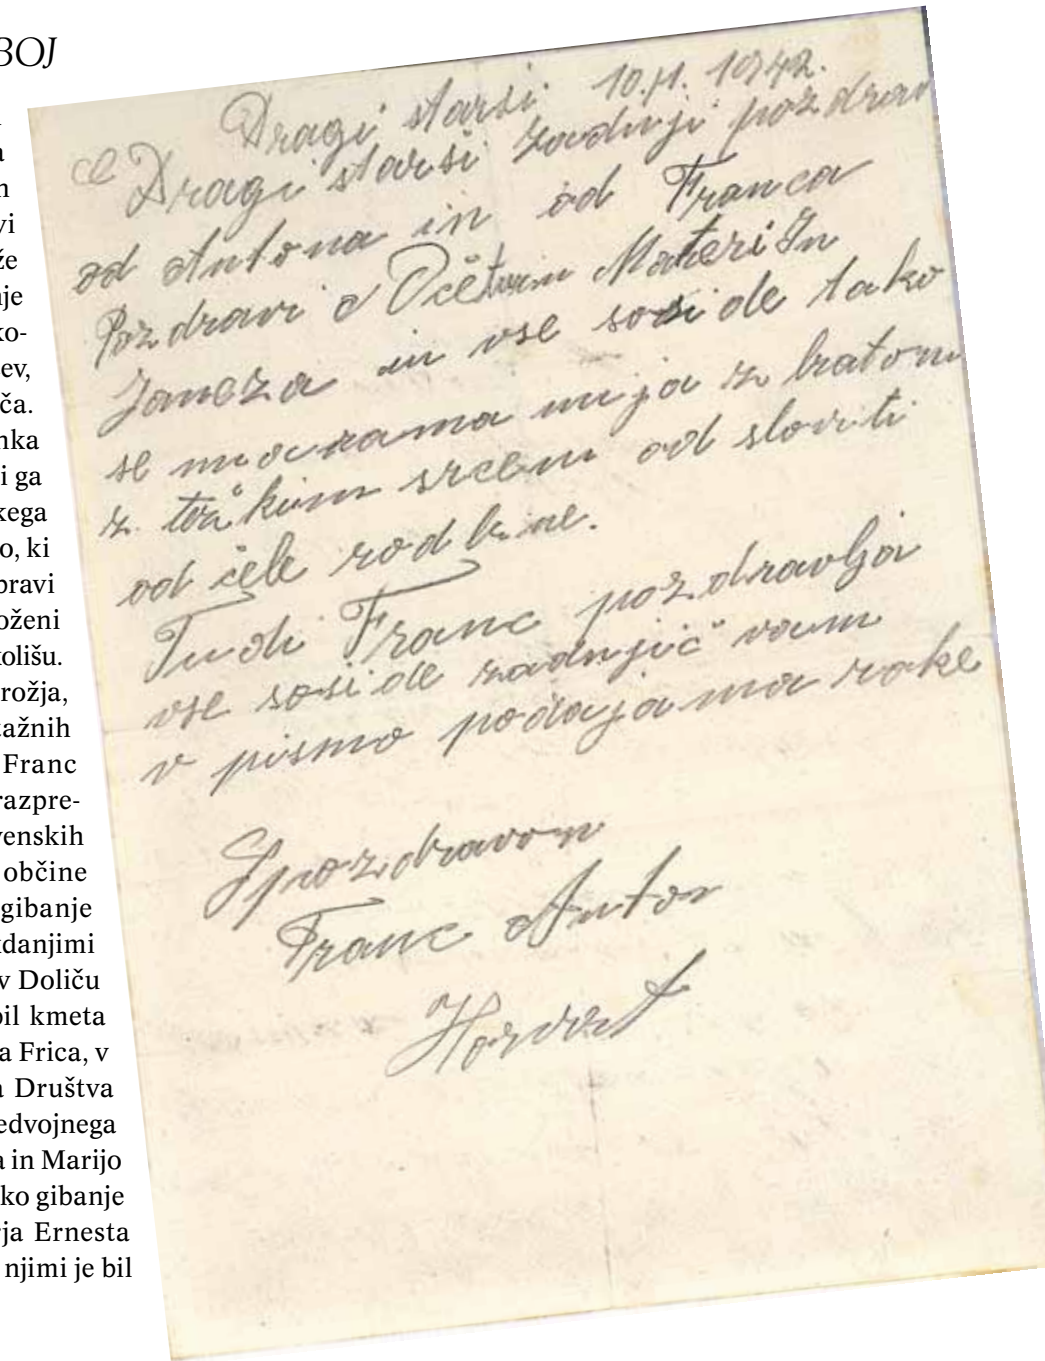 BOJ
a
n
vi
že
nje
ko-
ev,
ča.
nka
i ga
kega
o, ki
pravi
oženi
kolišu.
rožja,
ažnih
Franc
razpre-
venskih
občine
gibanje
kdanjimi
v Doliču
bil kmeta
a Frica, v
a Društva
edvojnega
a in Marijo
ko gibanje
rja Ernesta
njimi je bil
Dragi starsi. 10.11. 1942.
Dragi starsi zadnji pozdrav
od Antona in od Franca
Pozdravi Materi In
Janeza in vse soside tako
se morama mija z bratom
z srcem od sloviti
od cele rodbine.
Tudi Franc pozdravlja
vse soside zadnjič vam
v pismo podajama roke
Spozdravom
Franc Anton
Horvat